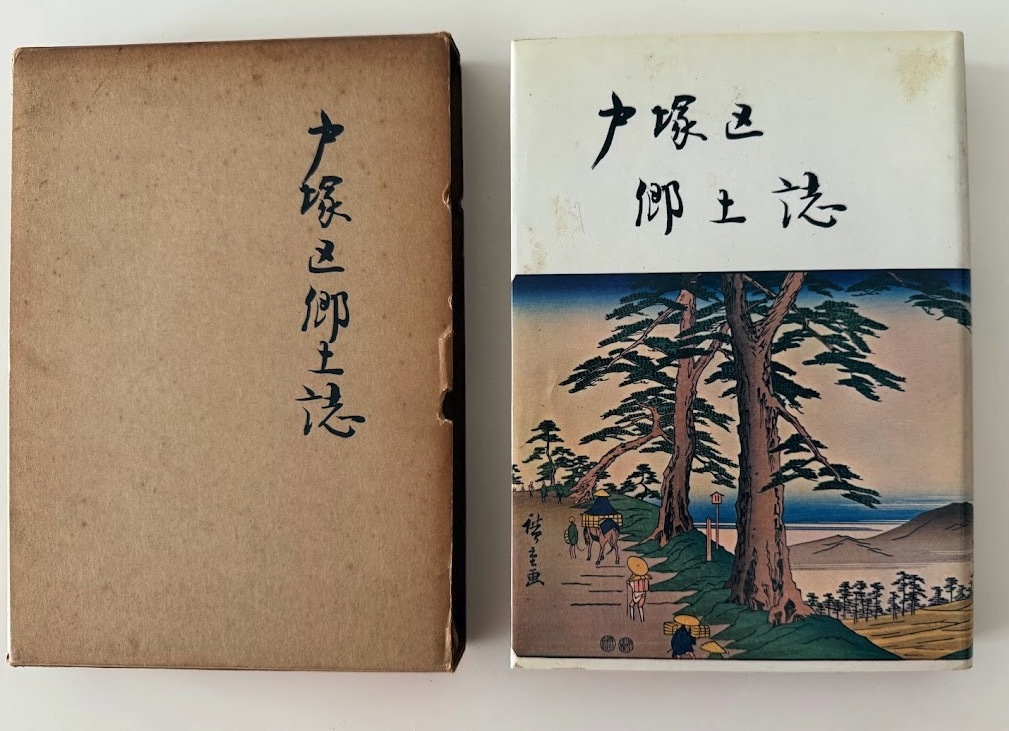 戸塚区郷土誌
戸塚区
郷土誌
廣重画